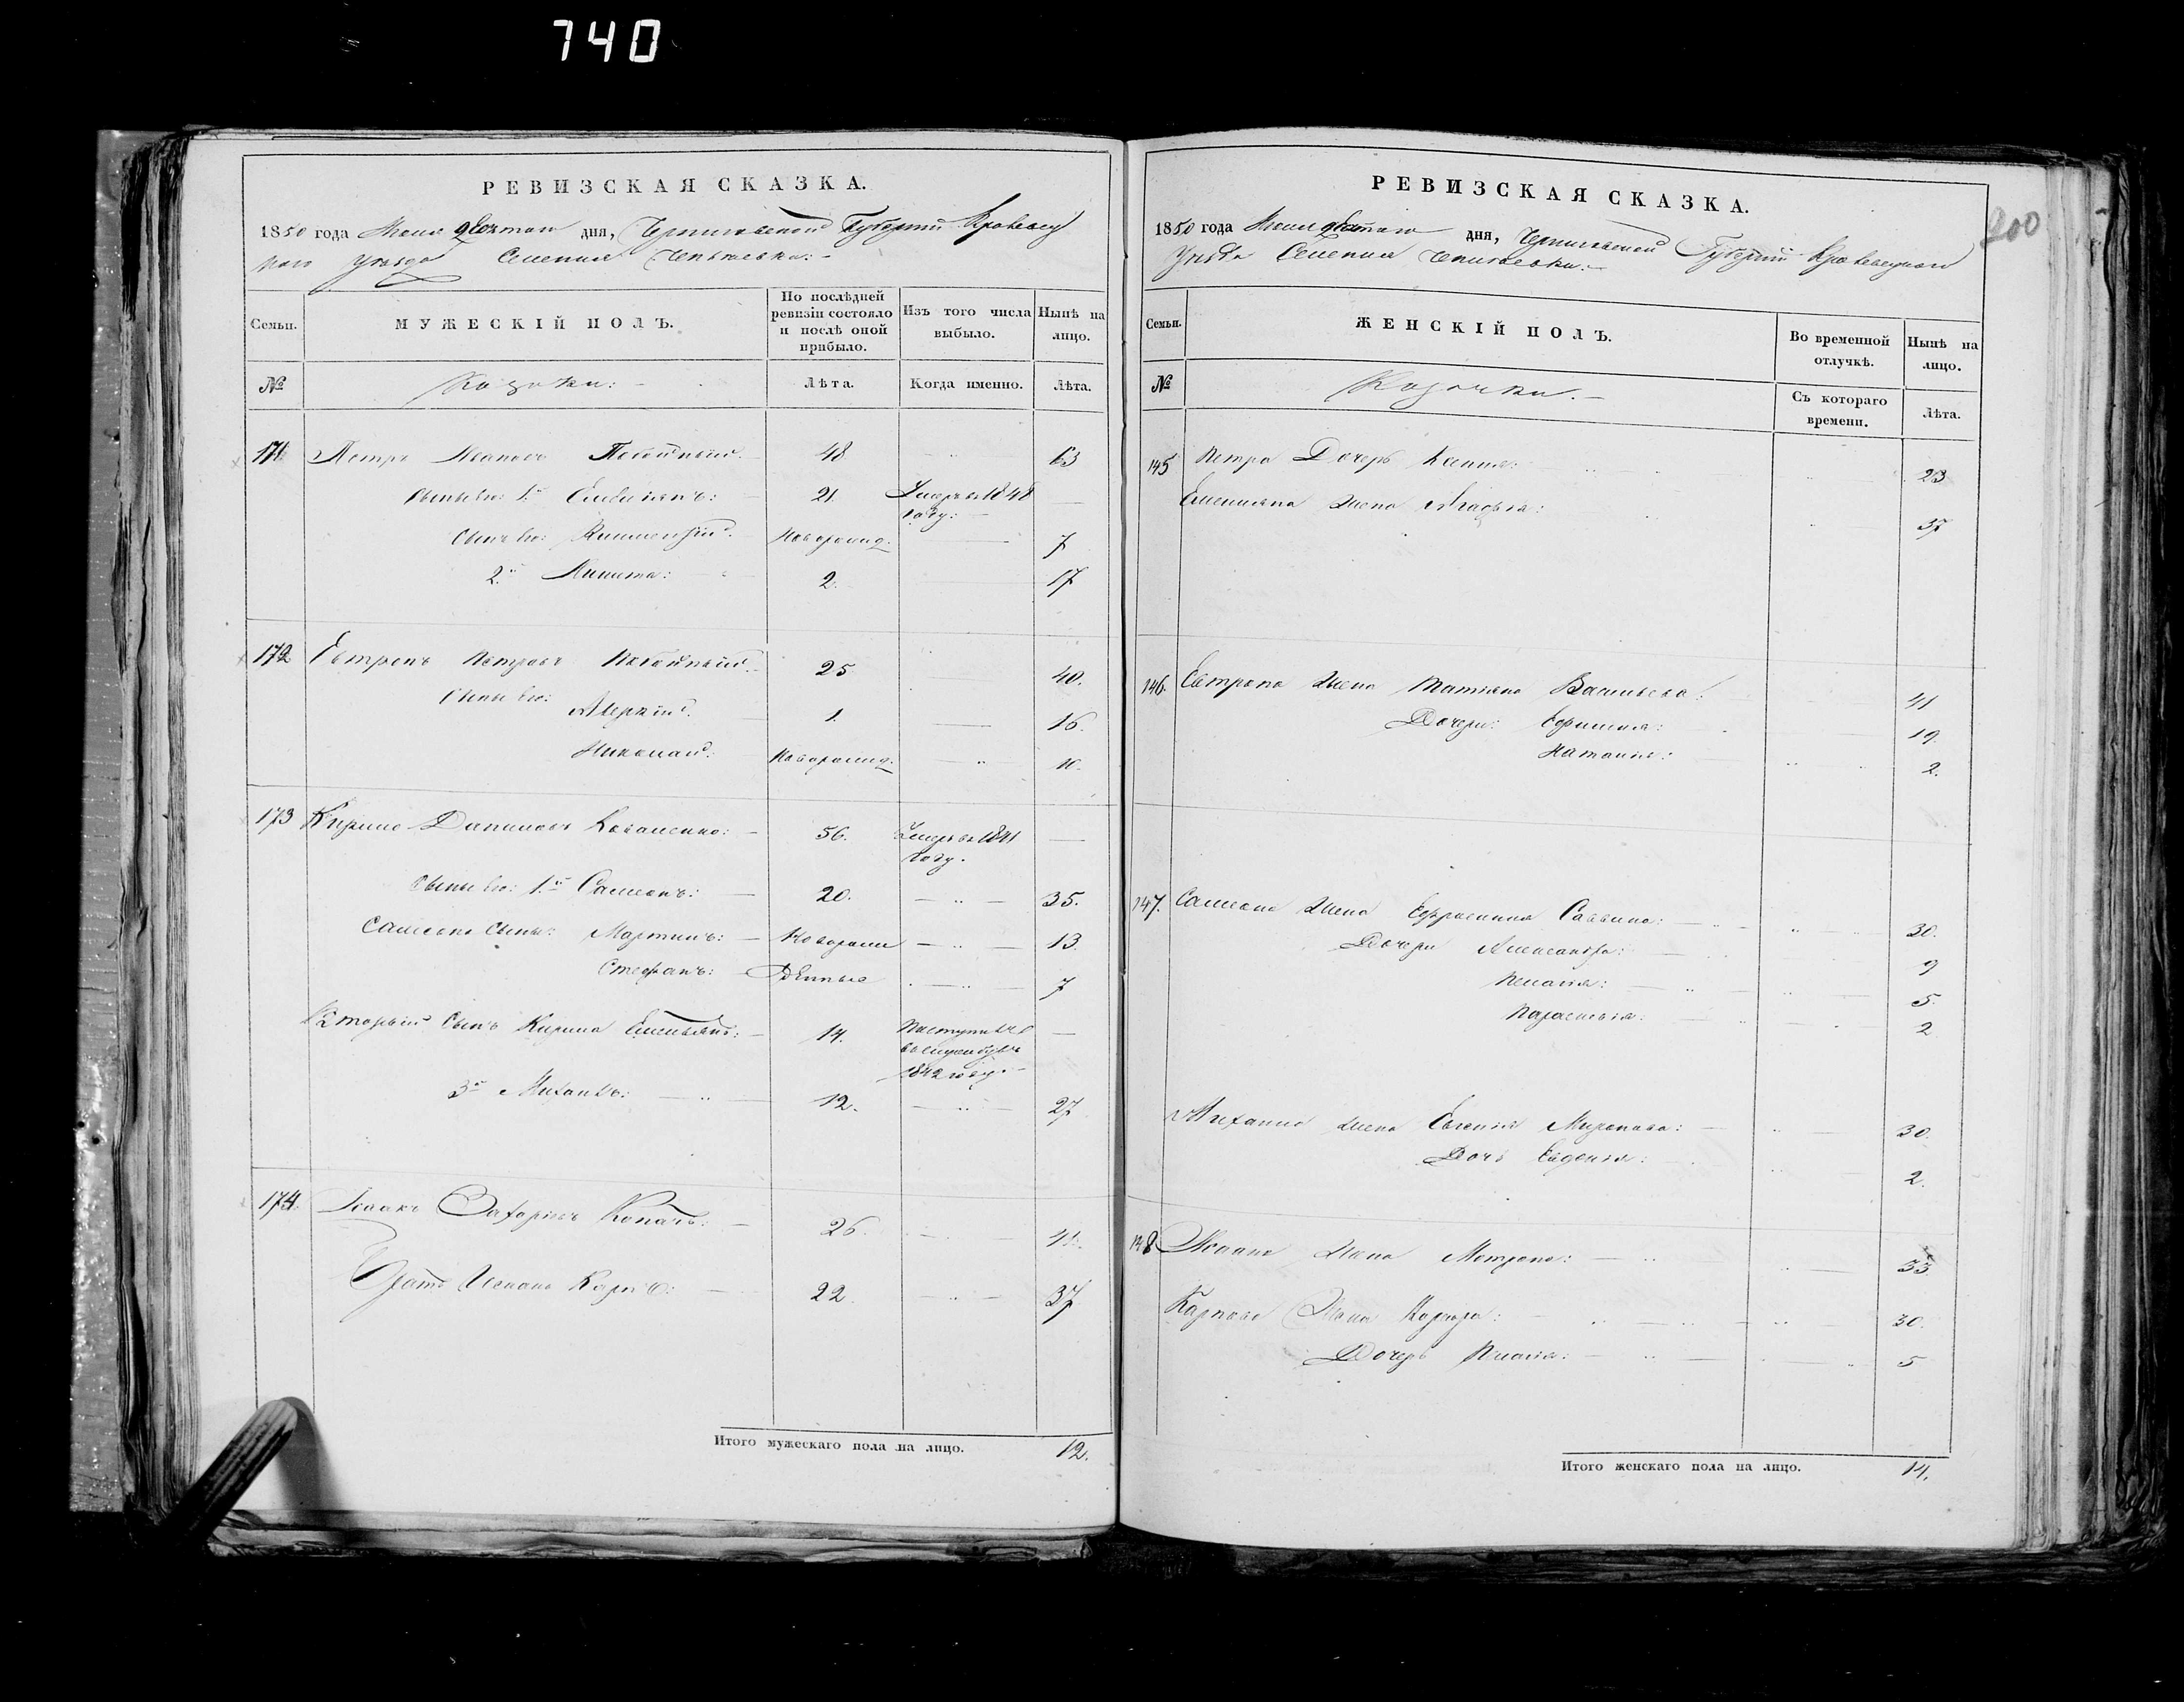 740
РЕВИЗСКАЯ СКАЗКА.
1850 года дня, Черниговской Губернии Кролевец
кого уезда Селения
Семьи. МУЖЕСКІЙ ПОЛЪ. По послѣдней ревизіи состояло и послѣ оной прибыло. Изъ того числа выбыло. Нынѣ на лицо.
№ Козаки: Лѣта. Когда именно. Лѣта.
171 Петръ Ивановъ 48 63
Сынъ его: 1.й Емельянъ: 21 Умеръ в 1848 году:
Сынъ его: Новорожд. 7
2.й Никита: 2. 17
172 Евтропъ Петровъ 25 40.
Сыны его:
Меркій. 1. 16.
Николай. Новорожд. 10.
173 Кирило Даниловъ Коваленко: 56. Умеръ в 1841 году.
Сыны его: 1.й Самсонъ: 20. 35.
Самсона сыны: Мартинъ: Новорож 13.
Стефанъ: денные 7
Вторый сынъ Кирила Емельянъ: 14. Поступилъ 1842 году.
3й Михаилъ: 12. 27
174 Исаакъ Захаріевъ Копачъ: 26. 41.
Братъ Исаака Карпъ: 22. 37
Итого мужескаго пола на лицо. 12.
РЕВИЗСКАЯ СКАЗКА. 200
1850 года дня, Черниговской Губерніи Кролевецкого
уезда Селения
Семьи. ЖЕНСКІЙ ПОЛЪ. Во временной отлучкѣ. Нынѣ на лицо.
№ Козачки. Съ котораго времени. Лѣта.
145 Петра Дочерь Ксенія: 23
Емельяна жена Агафія: 37
146. Евтропа жена Татіяна Васильева: 41
Дочери: Ефимія: 19.
Наталія: 2.
147. Самсона жена Ефросинія Саввина: 30.
Дочери Александра: 9
Пелагія: 5.
Параскевія: 2
Михаила жена Евгенія Миронова: 30.
Дочь Евдокія: 2.
148 Исаака жена Матрона: 33.
Карпова Жена Варвара: 30.
Дочерь Пелагія: 5
Итого женскаго пола на лицо. 14.